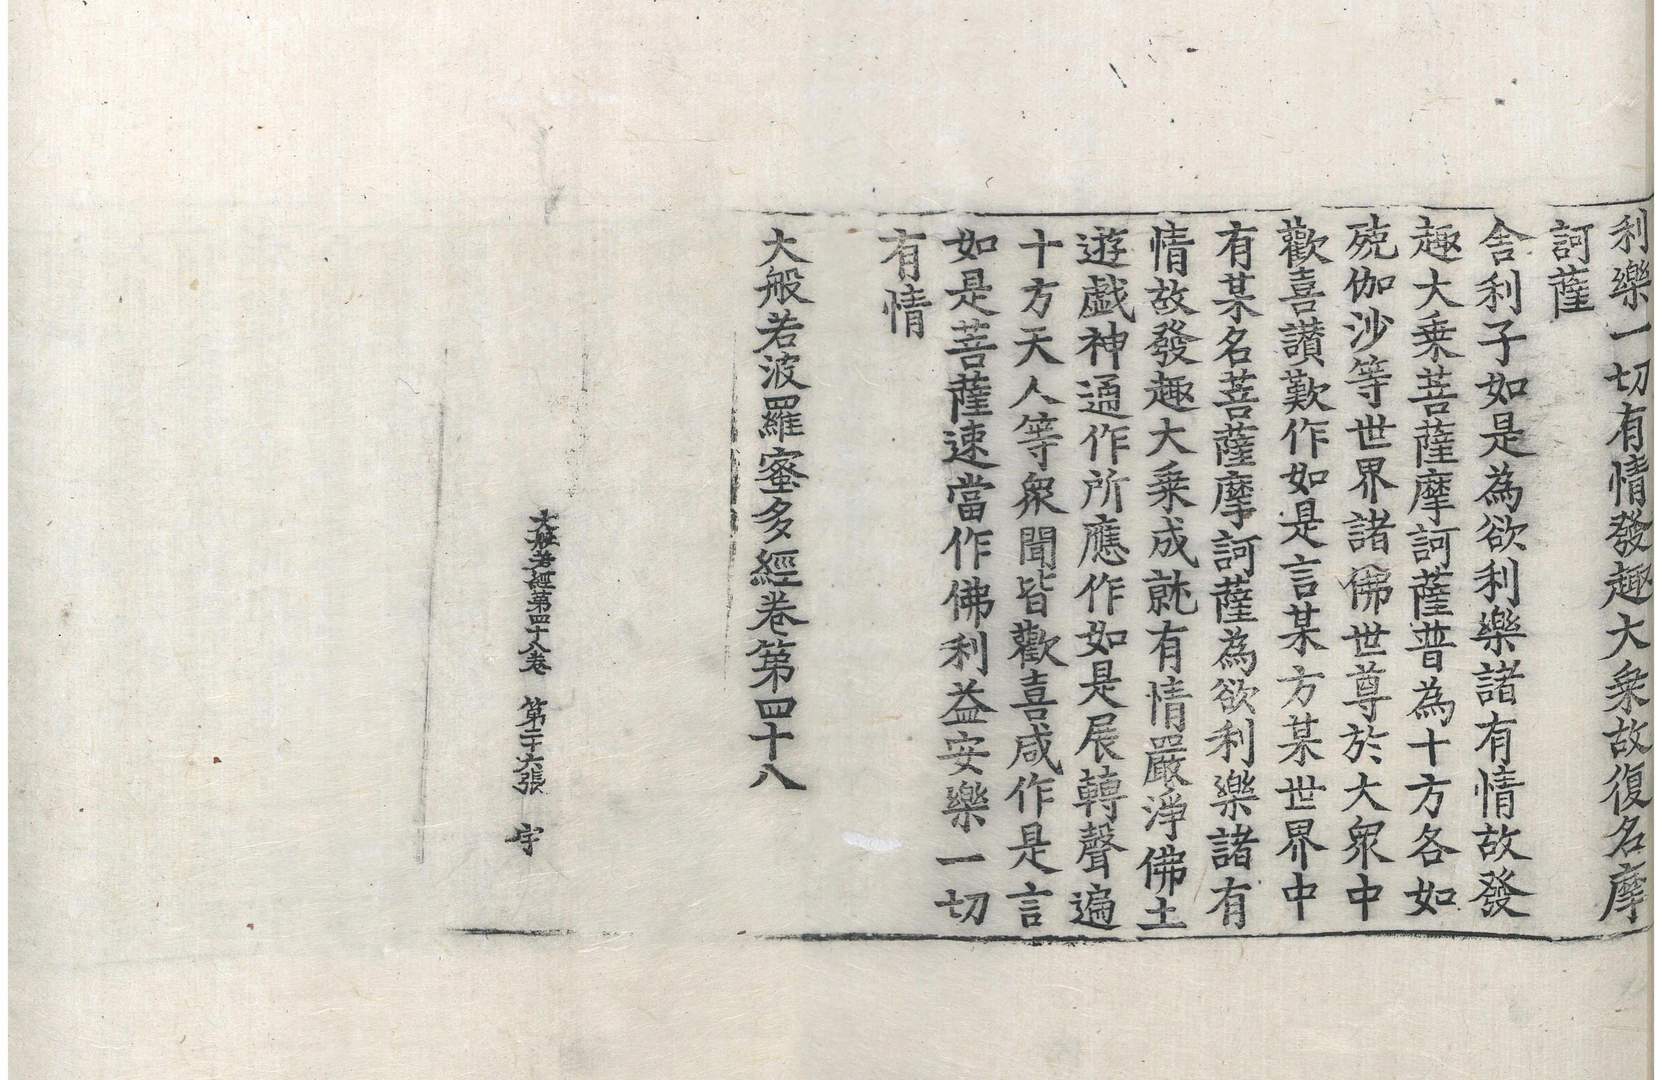 利樂一切有情發趣大乘故復名摩
訶薩
舍利子如是為欲利樂諸有情故發
趣大乘菩薩摩訶薩普為十方各如
殑伽沙等世界諸佛世尊於大衆中
歡喜讃歎作如是言某方某世界中
有某名菩薩摩訶薩為欲利樂諸有
情故發趣大乘成就有情嚴淨佛土
遊戯神通作所應作如是展轉聲遍
十方天人等衆聞皆歡喜咸作是言
如是菩薩速當作佛利益安樂一切
有情
大般若波羅蜜多經卷第四十八
大般若經第四十八卷 第二十六張 宇